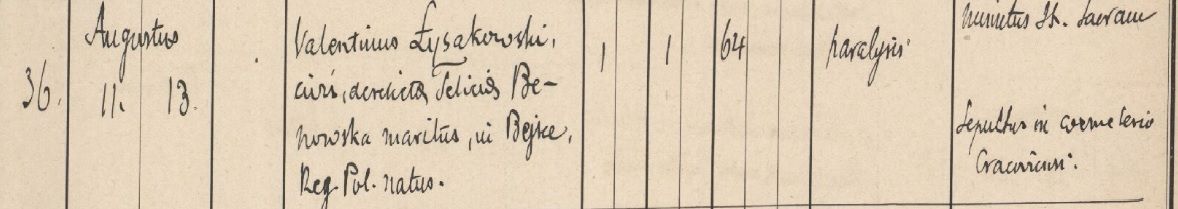 Augustus
36. 11. 13.
Valentinus Łysakowski,
civis, derelictae Feliciae Be-
nowska maritus, in Bejsce,
Reg. Pol. natus.
1 1 64
paralysis
munitus SS. Sacram
Sepultus in coemeterio
Cracoviensi.